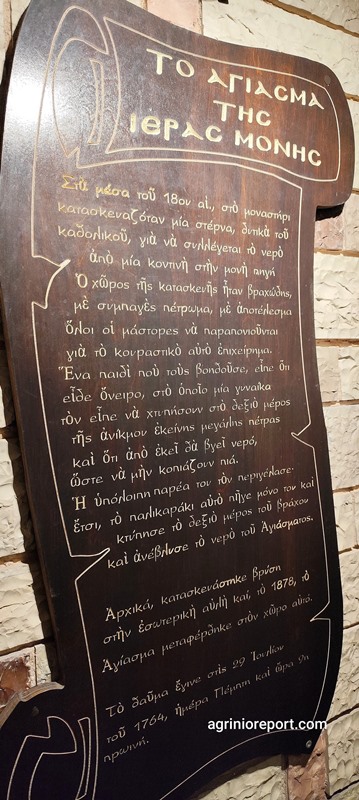 ΤΟ ΑΓΙΑΣΜΑ
ΤΗΣ
ΙΕΡΑΣ ΜΟΝΗΣ
Στὰ μέσα τοῦ 18ου αἰ., στὸ μοναστήρι
κατασκευαζόταν μία στέρνα, δυτικὰ τοῦ
καθολικοῦ, γιὰ νὰ συλλέγεται τὸ νερὸ
ἀπὸ μία κοντινὴ στὴν μονὴ πηγή
Ὁ χῶρος τῆς κατασκευῆς ἦταν βραχώδης,
μὲ συμπαγὲς πέτρωμα, μὲ ἀποτέλεσμα
ὅλοι οἱ μάστορες νὰ παραπονιοῦνται
γιὰ τὸ κουραστικὸ αὐτὸ ἐπιχείρημα.
Ἕνα παιδὶ ποὺ τοὺς βοηθοῦσε, εἶπε ὅτι
εἶδε ὄνειρο, στὸ ὁποῖο μία γυναίκα
τὸν εἶπε νὰ χτυπήσουν στὸ δεξιὸ μέρος
τῆς ἀνίκμου ἐκείνης μεγάλης πέτρας
καὶ ὅτι ἀπὸ ἐκεῖ θὰ βγεῖ νερό,
ὥστε νὰ μὴν κοπιάζουν πιά.
Ἡ ὑπόλοιπη παρέα του τὸν περιγέλασε·
ἔτσι, τὸ παλικαράκι αὐτὸ πῆγε μόνο του καὶ
κτύπησε τὸ δεξιὸ μέρος τοῦ βράχου
καὶ ἀνέβλυσε τὸ νερὸ τοῦ Ἁγιάσματος.
Ἀρχικά, κατασκευάστηκε βρύση
στὴν ἐσωτερικὴ αὐλὴ καί, τὸ 1878, τὸ
Ἁγίασμα μεταφέρθηκε στὸν χῶρο αὐτό.
Τὸ θαῦμα ἔγινε στὶς 29 Ἰουλίου
τοῦ 1764, ἡμέρα Πέμπτη καὶ ὥρα 9η
πρωινή.
agrinioreport.com